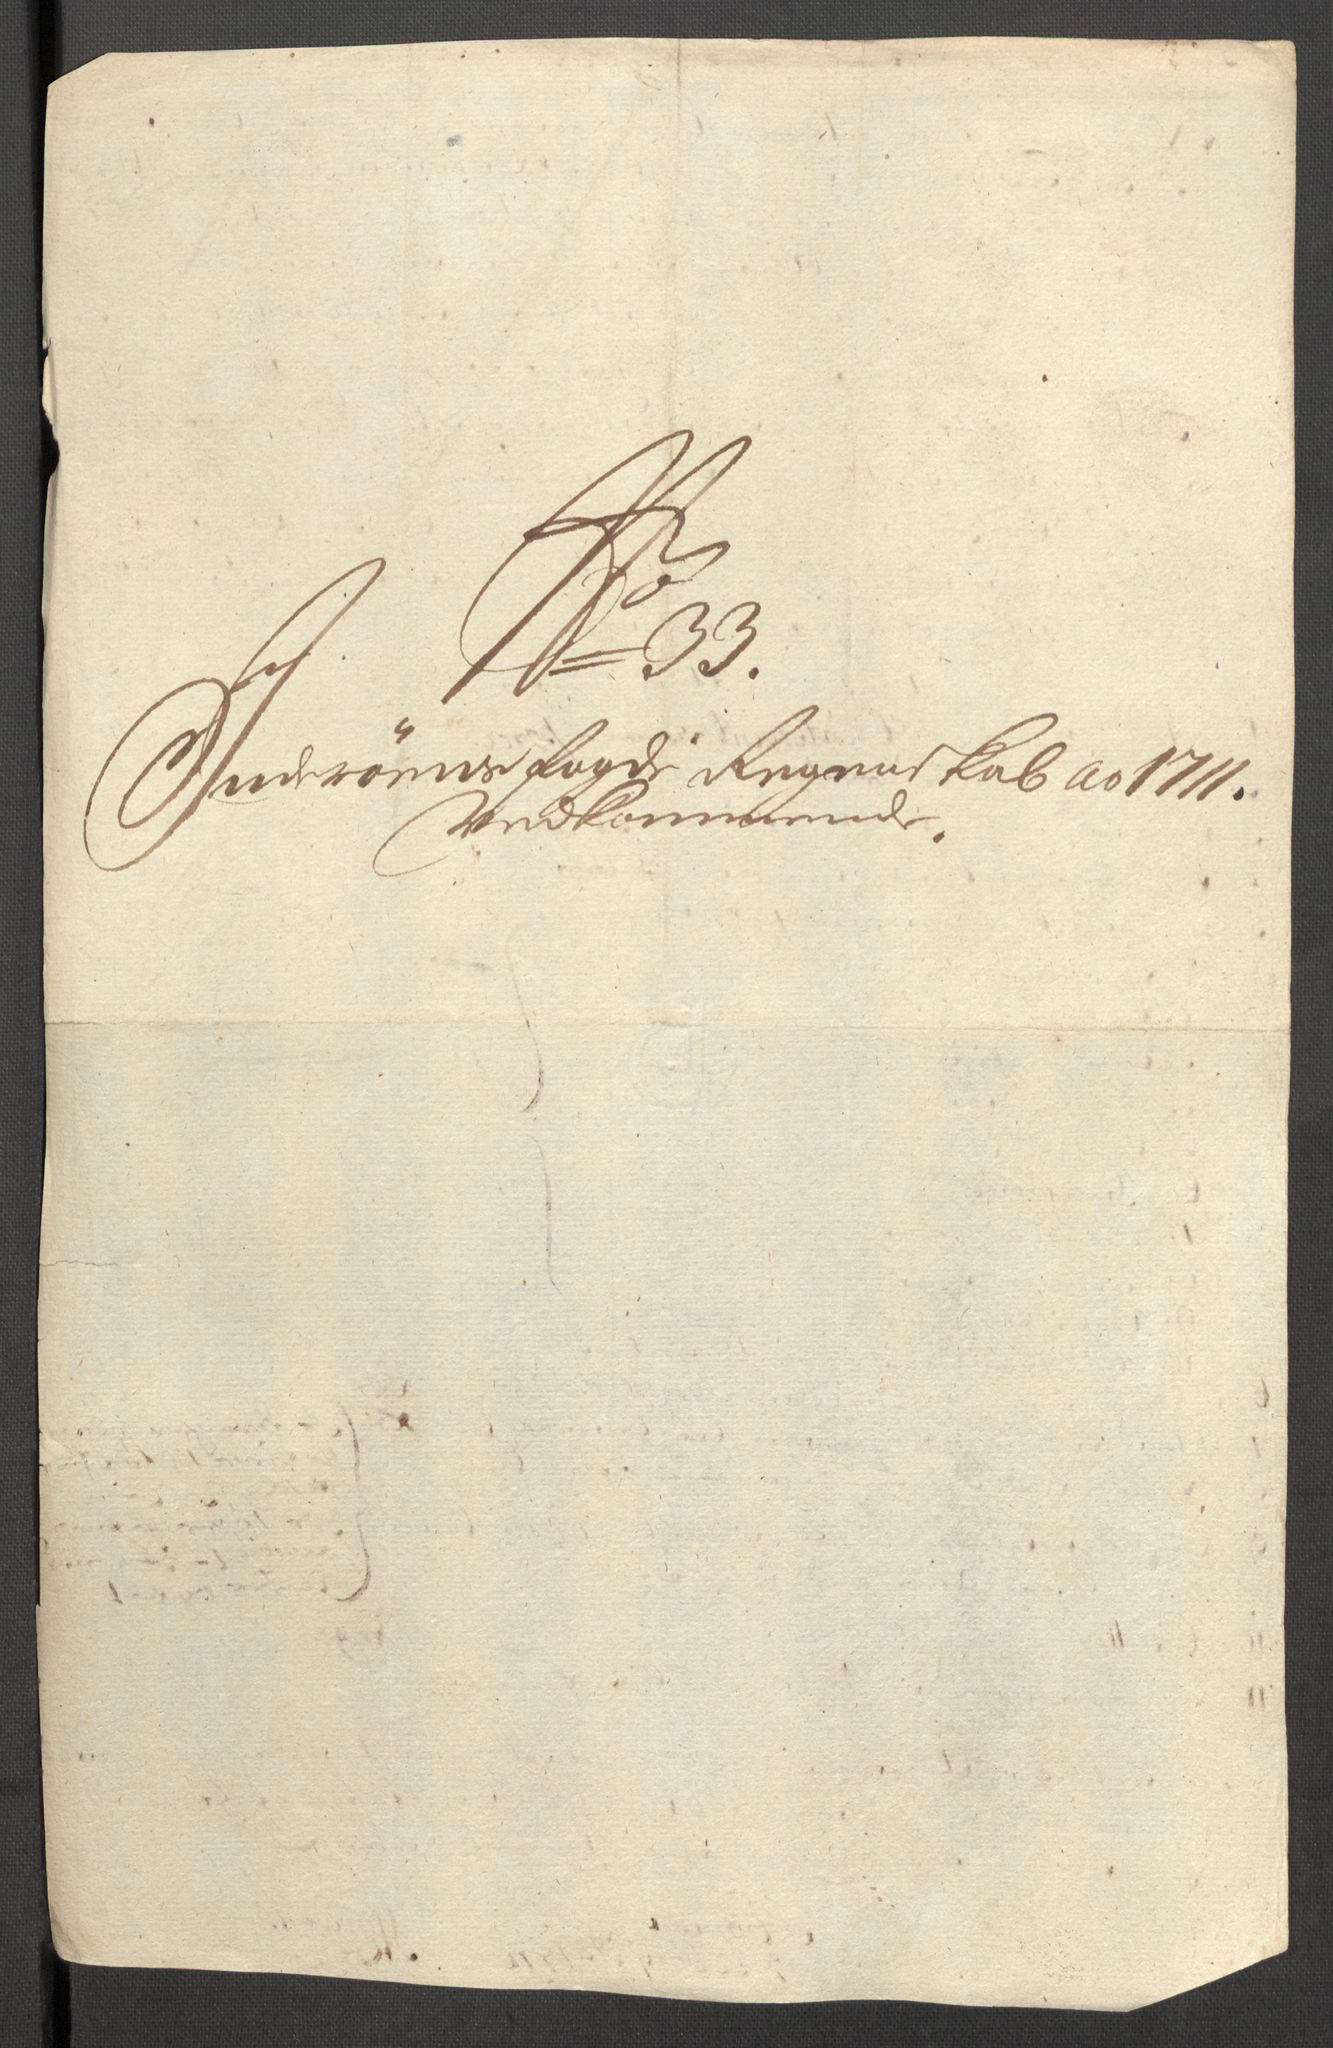 No 33.
Inderöens fogds Regenskab ao 1711.
Vedkommende.